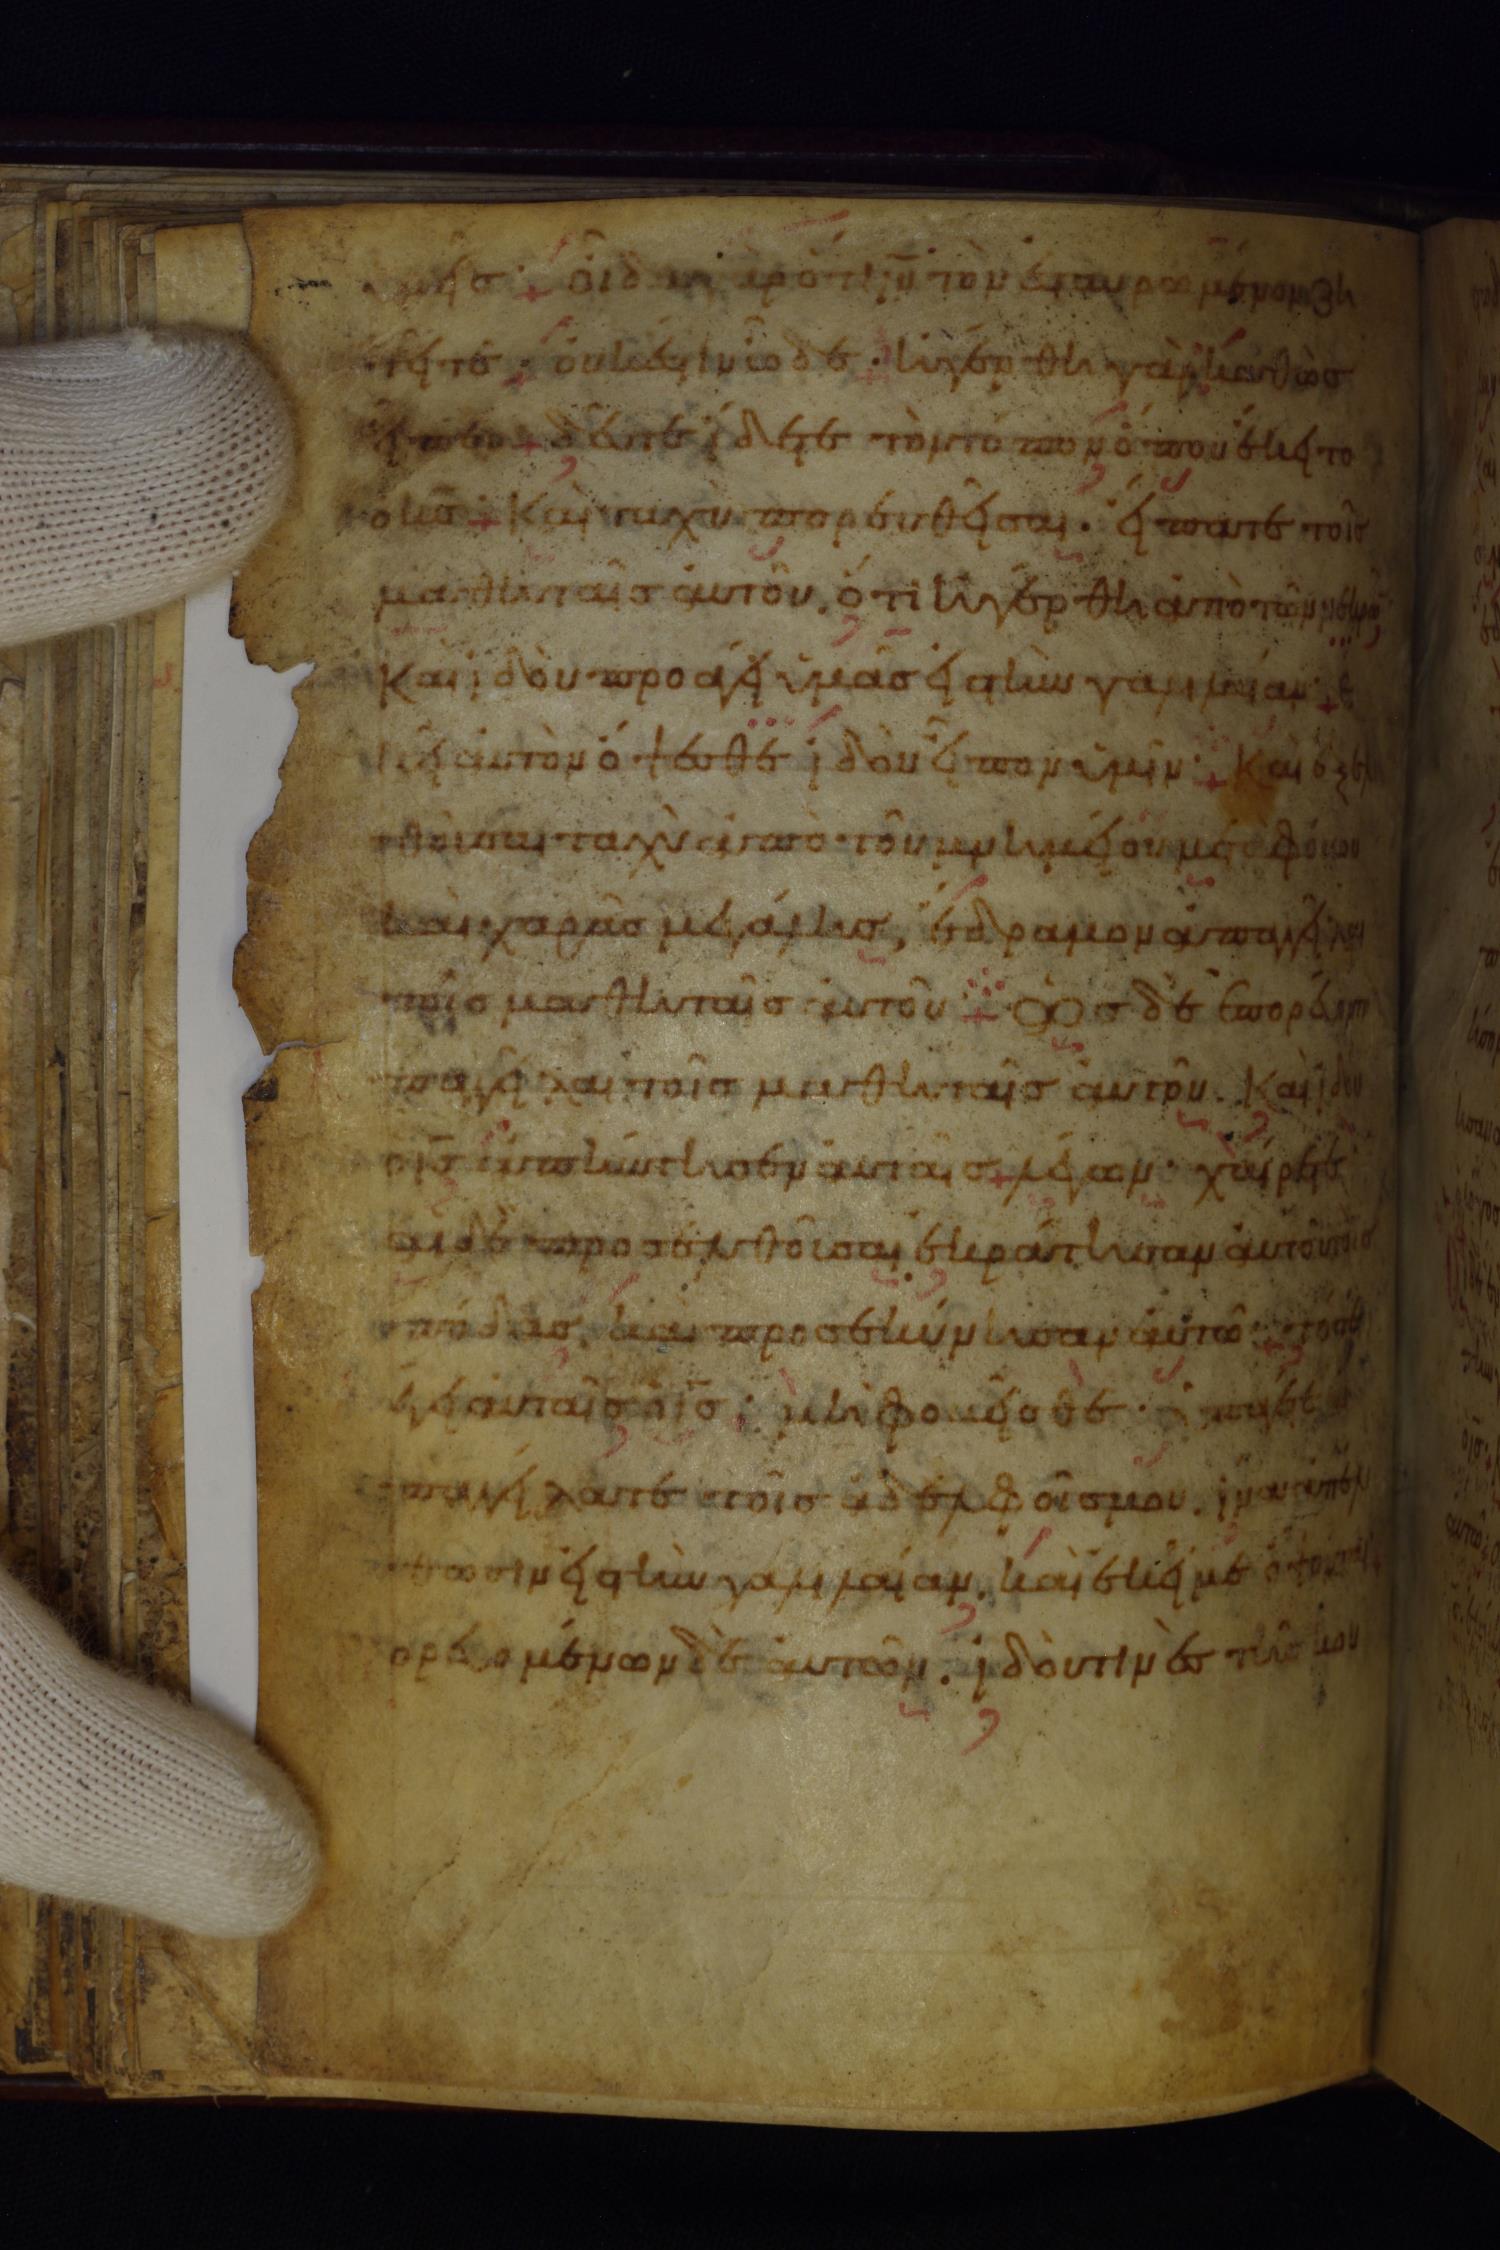 μεῖς· οἶδα γὰρ ὅτι ιν τὸν ἐσταυρωμένον ζη
τεῖτε· οὐκ ἔστιν ὧδε· ἠγέρθη γὰρ καθὼς
εἶπεν· δεῦτε ἴδετε τὸν τόπον ὅπου ἔκειτο
ὁ κς· Καὶ ταχὺ πορευθεῖσαι. εἴπατε τοῖς
μαθηταῖς αὐτοῦ, ὅτι ἠγέρθη ἀπὸ τῶν νεκρῶ
καὶ ἰδοὺ προάγει ὑμᾶς εἰς τὴν γαλιλαίαν· ἐ
κεῖ αὐτὸν ὄψεσθε ἰδοὺ εἶπον ὑμῖν· Καὶ ἐξελ
θοῦσαι ταχὺ ἀπὸ τοῦ μνημείου μετὰ φόβου
καὶ χαρᾶς μεγάλης, ἔδραμον ἀπαγγεῖλαι
τοῖς μαθηταῖς αὐτοῦ· ὡς δὲ ἐπορεύοντο
ἀπαγγεῖλαι τοῖς μαθηταῖς αὐτοῦ. Καὶ ἰδοὺ
ὁ ις ἀπήντησεν αὐταῖς λέγων· χαίρετε
αἱ δὲ προσελθοῦσαι ἐκράτησαν αὐτοῦ τοὺς
πόδας, καὶ προσεκύνησαν αὐτῷ· τότε
λέγει αὐταῖς ὁ ις· μὴ φοβεῖσθε· ὑπάγετε ἀ
παγγείλατε τοῖς ἀδελφοῖς μου. ἵνα ἀπέλ
θωσιν εἰς τὴν γαλιλαίαν. καὶ ἐκεῖ με ὄψονται
πορευομένων δὲ αὐτῶν. ἰδού τινὲς τῆς κου